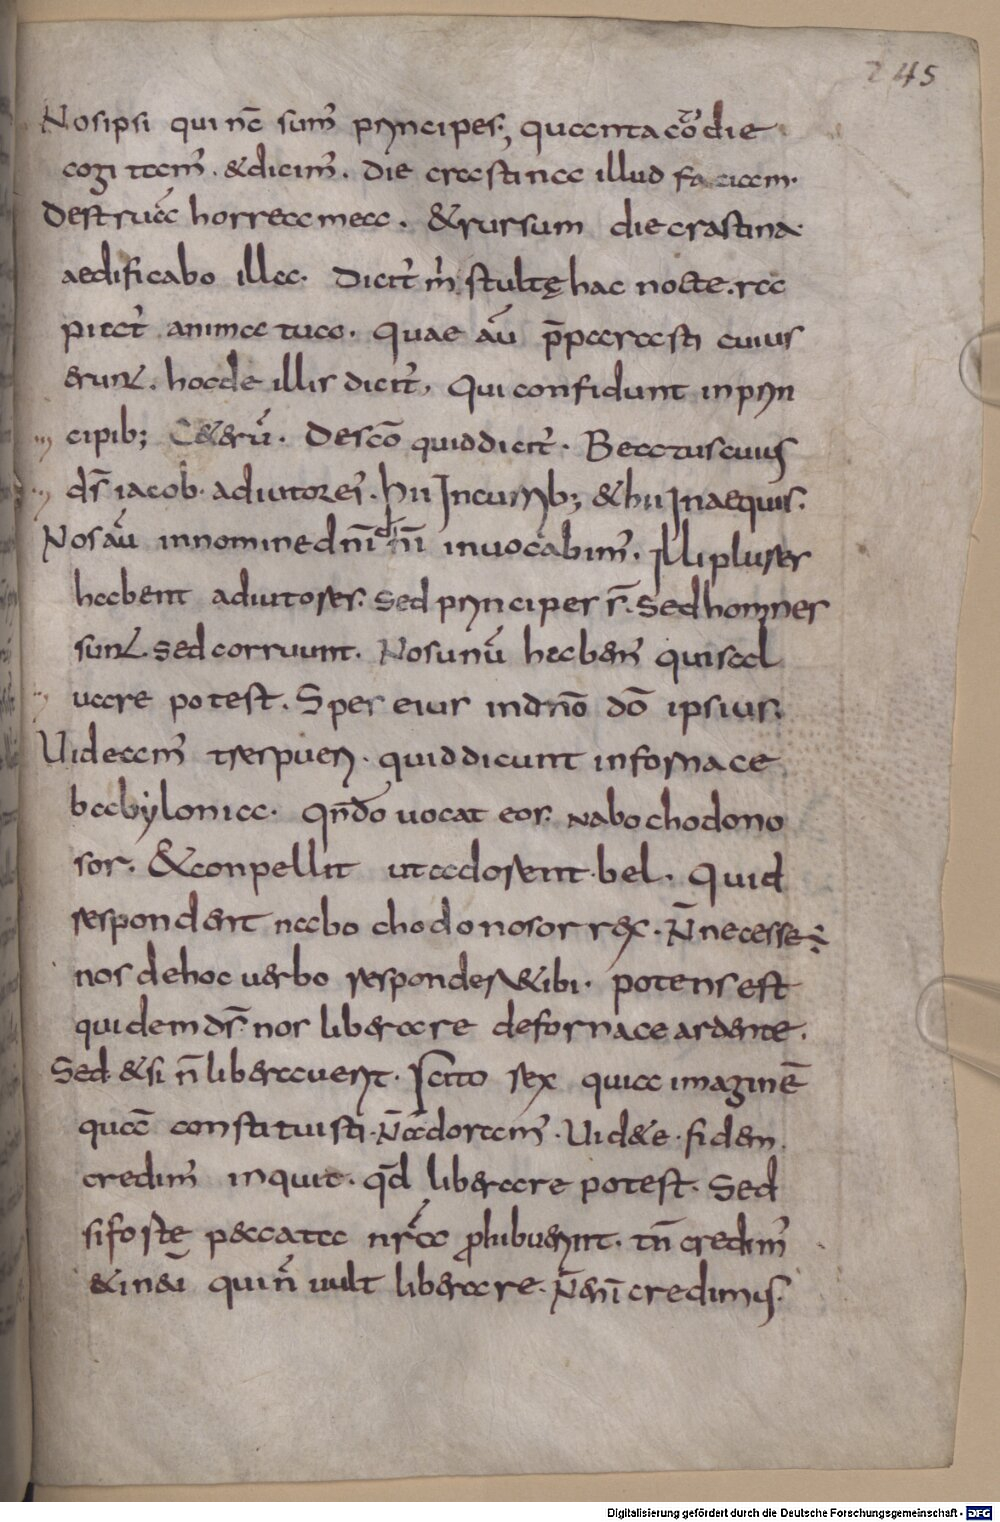 245
Nosipsi qui nc̄ sum̄ principes; quanta cō die
cogitam̄. &dicim̄. Die crastina illud faciam.
Destruā horrea mea. &rursum die crastina
aedificabo illa. Dicit̄ m̄ stultę hac nocte. ra
pit̄ anima tua. Quae aū p̄parasti cuius
erunt. hoc de illis dicit̄. Qui confidunt in prin
cipib; C&erū. Descō quid dicit̄. Beatus cuius
ds̄ iacob adiutor ei. hii In currib; &hii In aequis.
Nos aū in nomine dn̄i di n̄i invocabim̄. Illi plures
habent adiutores. Sed principes s̄. Sed homines
sunt. sed corruunt. Nos unū habem̄ qui sal
vare potest. Spes eius in dn̄o dō ipsius.
Uideam̄ tres pueri. quid dicunt in fornace
babyloniae. Qn̄do vocat eos. nabochodono
sor. &conpellit ut adorent bel. Quid
respondent nabochodonosor rex. N̄ necesse ÷
nos de hoc verbo respondere tibi. potens est
quidem ds̄ nos liberare de fornace ardente.
Sed &si n̄ liberaverit. Scito rex quia imaginē
quā constituisti. n̄ adoram̄. Vid&e. fidem
credim̄ inquit. qd̄ liberare potest. Sed
si forte peccata nr̄a prohibuerint. tn̄ credim̄
&in eū qui n̄ vult liberare. N̄ eni credimus.
Digitalisierung gefördert durch die Deutsche Forschungsgemeinschaft - DFG